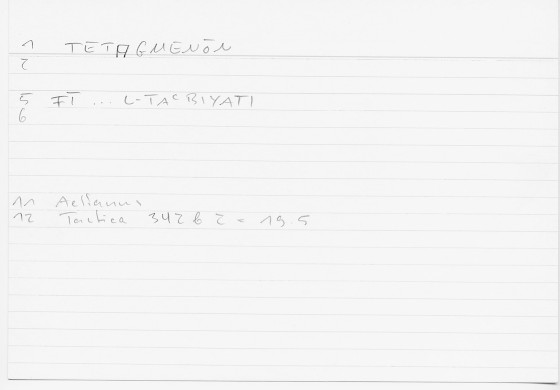 1 TETAGMENŌN
2
5 FĪ ... L-TAᶜBIYATI
6
11 Aelianus
12 Tactica 342 b 2 = 19.5